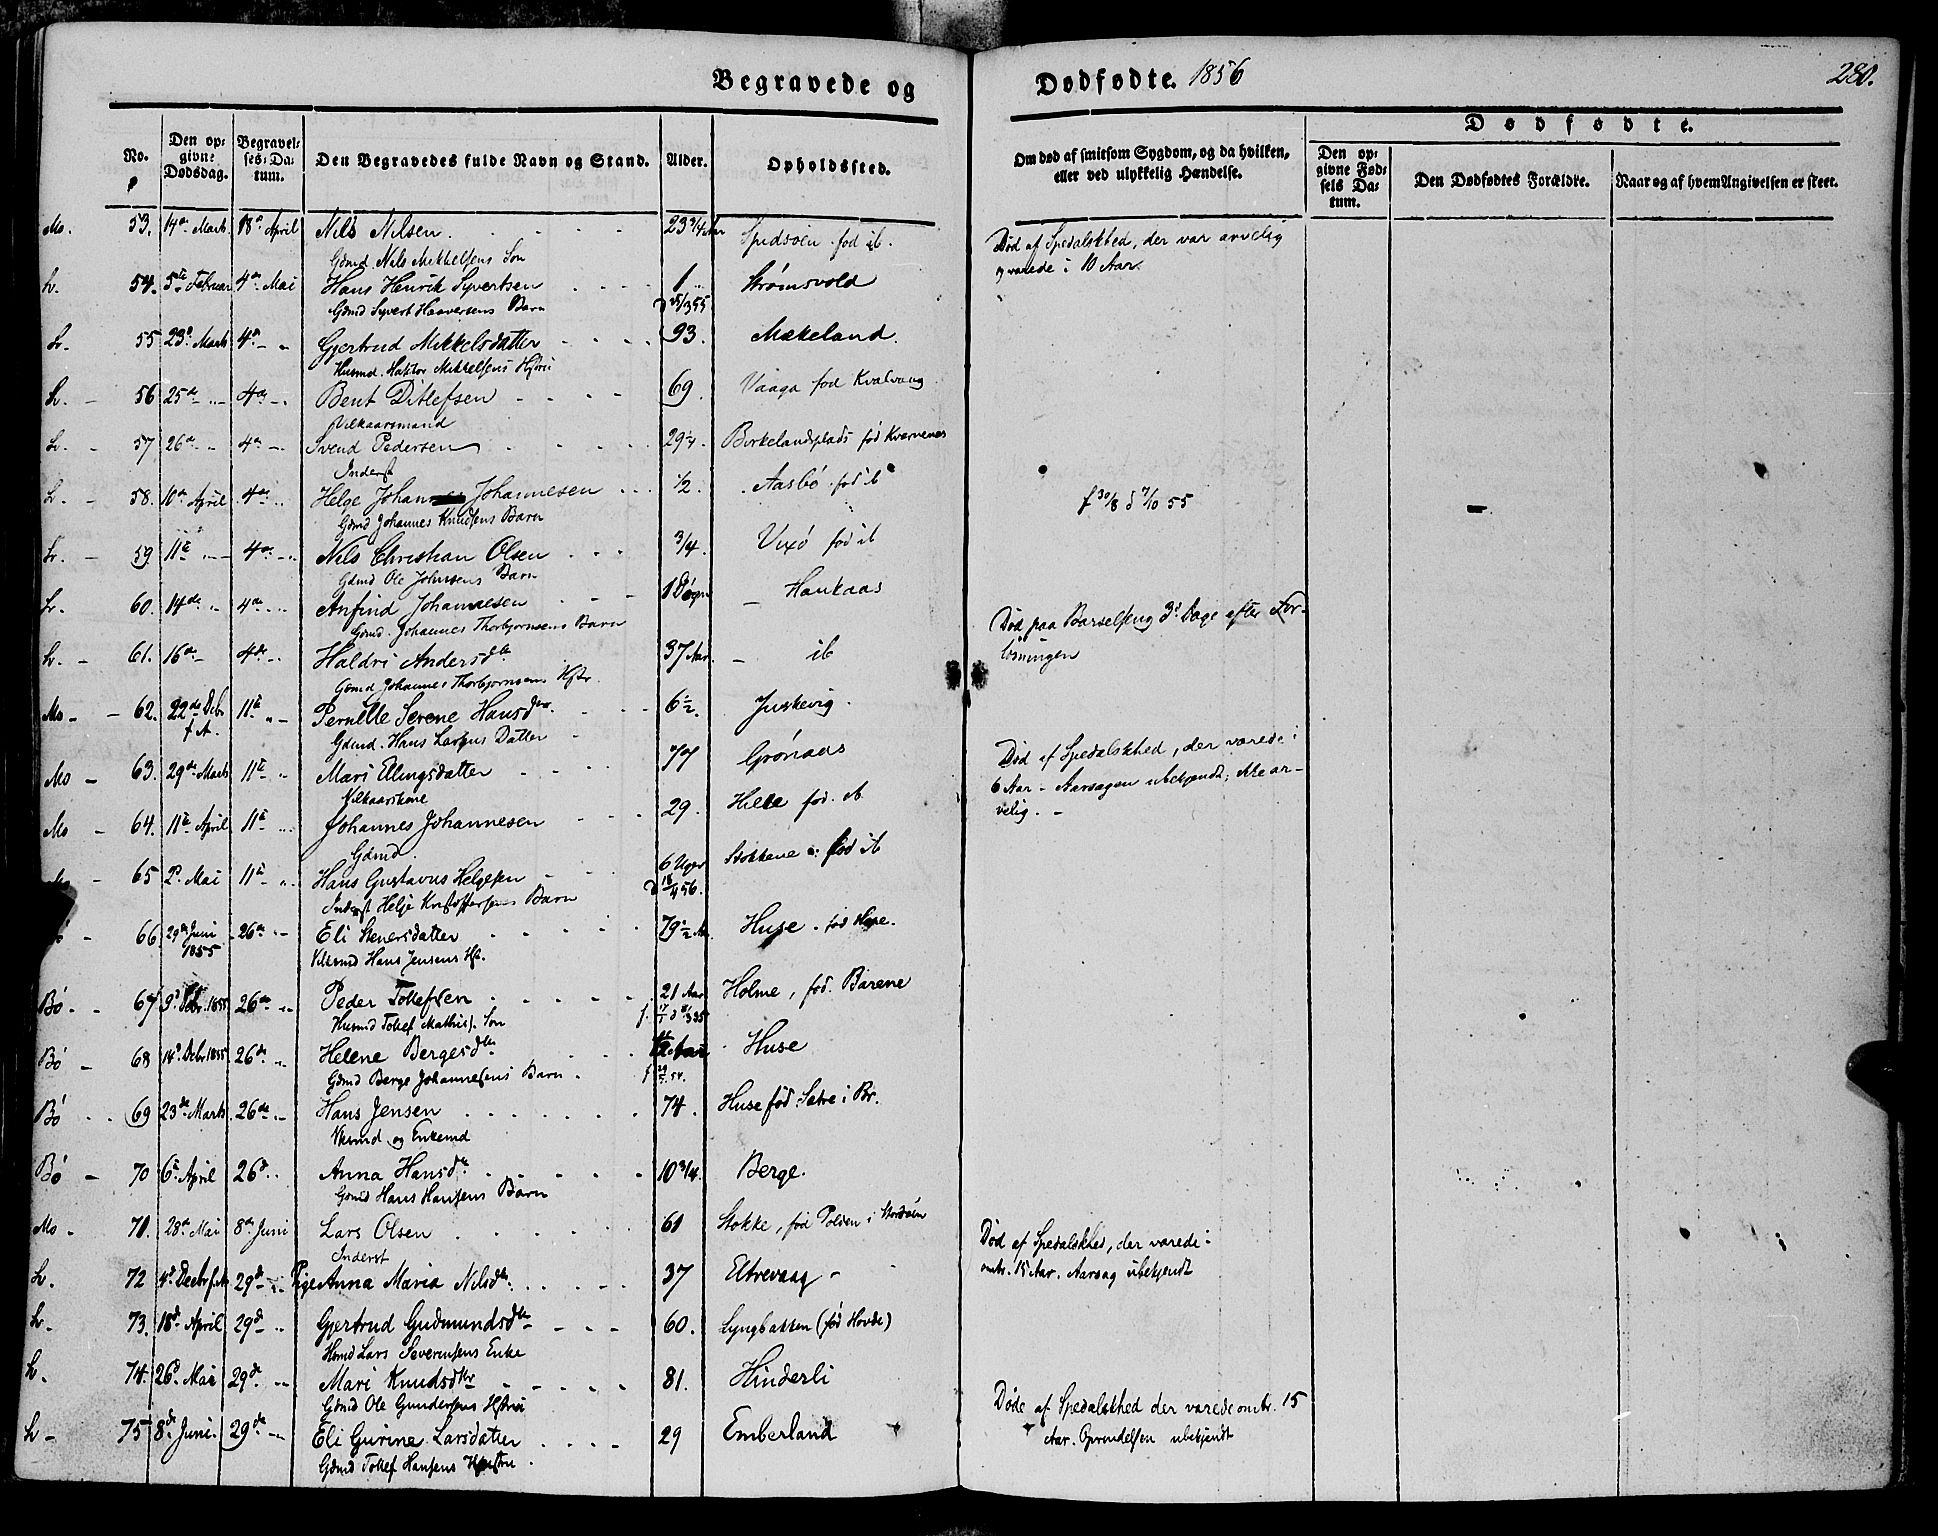 Begravede og
Dødfødte. 1856
280.
No.
Den op-
givne
Dødsdag.
Begravel-
ses-Da-
tum.
Den Begravedes fulde Navn og Stand.
Alder.
Opholdssted.
Om død af smitsom Sygdom, og da hvilken,
eller ved ulykkelig Hændelse.
Dødfødte.
Den op-
givne Fød-
sels Da-
tum.
Den Dødfødtes Forældre.
Naar og af hvem Angivelsen er skeet.
Mo. 53. 14de Marts 18de April Nils Nilsen. 23 3/4 Aar fød ib.
Gdmd Nils Mikkelsens Søn
Død af Spedalskhed, der var arvelig
og varede i 10 Aar.
L. 54. 5te Februar 4de Mai Hans Henrik Syvertsen 1 Strømsvold
Gdmd Syvert Haaversens Barn
L. 55 23de Marts 4de Gjertrud Mikkelsdatter 93. Mækeland.
Husmd. Mikkelsens Hstru
L. 56 25de 4de Bent Ditlefsen 69. Vaaga fød Kvalvaag
Vilkaarsmand
L. 57 26de 4de Svend Pedersen 29 1/4. Birkelandsplads fød Kvernenes
Inderst
L. 58. 10de April 4de Helge Johannesen 1/2. Aasbø fød ib
Gdmd Johannes Knudsens Barn
f 30/8 d 7/10 55
L. 59. 11te 4de Nils Christian Olsen 3/4. fød ib
Gdmd Ole Johnsens Barn
L. 60. 14de 4de Anfind Johannesen 1 Døgn Haukaas
Gdmd. Johannes Thorbjørnsens Barn
L. 61. 16de 4de Haldri Andersdtr 37 Aar. ib
Gdmd Johannes Thorbjørnsens Hstr.
Død paa Barselseng 3de Dage efter For-
løsningen
Mo 62. 22de Decbr f.A. 11te Pernille Serene Hansdtr. 6 1/2. Juskevig.
Gdmd. Hans Larsens Datter
Mo 63. 29de Marts 11te Mari Elingsdatter 77 Grønaas
Vilkaarskone
Død af Spedalskhed, der varede i
6 Aar - Aarsagen ubekjendt; ikke ar-
velig. -
Mo 64. 11te April 11te Johannes Johannesen 29. Hille fød. ib
Gdmd.
65 2d. Mai 11te Hans Gustavus Helgesen 6 Uger Stokkene fød ib
Inderst Helje Kristoffersens Barn
66 29de Juni 1855 26de Eli Stenersdatter 79 1/2 A. Huse. fød Huse.
Vilkmd Hans Jensens Hst.
Bø 67 9d 1855 26de Peder Tollefsen 21 Aar Holme, fød. Barene
Husmd Tollef Mathis. Søn
Bø 68 14d Debr 1855 26de Helene Bergesdtr Huse
Gdmd Berge Johannesens Barn
Bø 69 23de Marts 26de Hans Jensen 74. Huse fød Sætre i Br.
Vkmd og Enkemd
Bø 70 6te April 26de Anna Hansdtr. 10 3/4. Berge.
Gdmd Hans Hansens Barn
Mo 71. 28de Mai 8de Juni Lars Olsen 61 Stokke, fød Polden i
Inderst
Død af Spedalskhed, der varede i
omtr. 15 Aar. Aarsag ubekjendt
L. 72 4d Decbr f.A. 29de Pige Anna Maria Nilsdtr. 37 Eltrevaag
L. 73. 18d April 29de Gjertrud Gudmundsdtr 60. Lyngbakken (fød Hovde)
Hsmd Lars Severinsens Enke
L. 74. 26d. Mai 29de Mari Knudsdtr 81. Hinderli
Gdmd Ole Gundersens Hstru
L 75 8de Juni. 29de Eli Gurine Larsdatter 29 Emberland
Gdmd Tollef Hansens Hustru.
Døde af Spedalskhed der varede omtr. 15
Aar. Oprindelsen ubekjendt